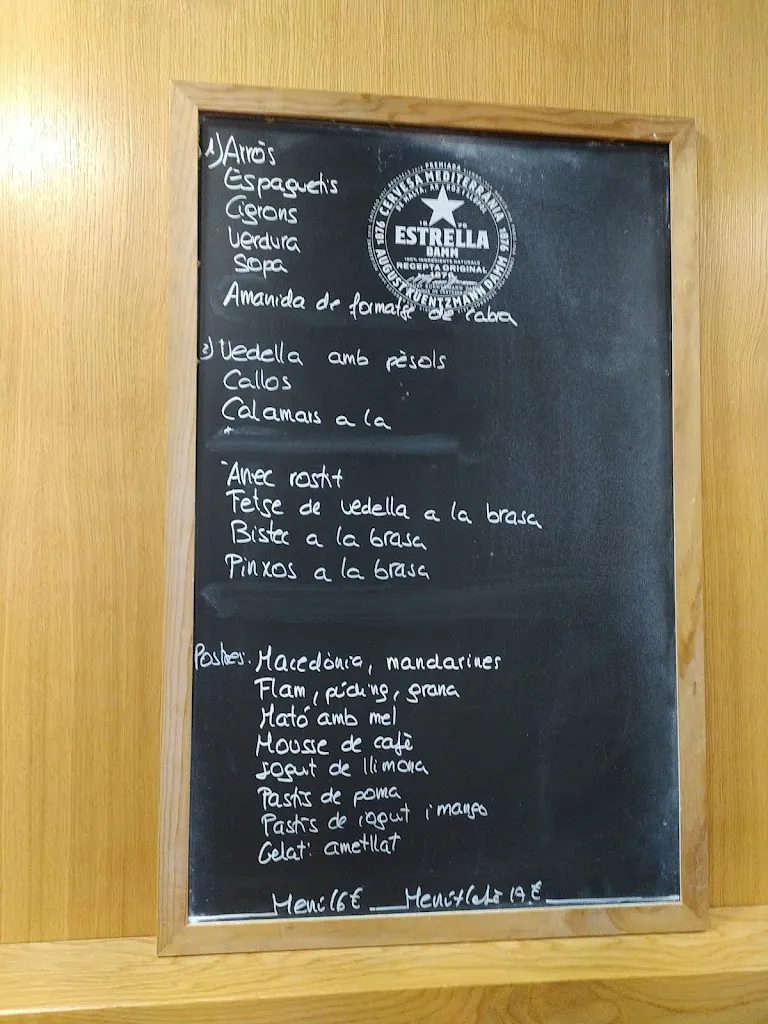 1) Arròs
Espaguetis
Cigrons
Verdura
Sopa
Amanida de formatge de cabra
CERVESA MEDITERRÀNIA
1876
1876
ESTRELLA
DAMM
100% INGREDIENTS NATURALS
RECEPTA ORIGINAL
1876
AUGUST KUENTZMANN DAMM
2) Vedella amb pèsols
Callos
Calamars a la
Ànec rostit
Fetge de vedella a la brasa
Bistec a la brasa
Pinxos a la brasa
Postres: Macedònia, mandarines
Flam, púding, grana
Mató amb mel
Mousse de cafè
Iogurt de llimona
Pastís de poma
Pastís de iogurt i mango
Gelat: ametllat
Menú 16€ Menú+cafè 19€